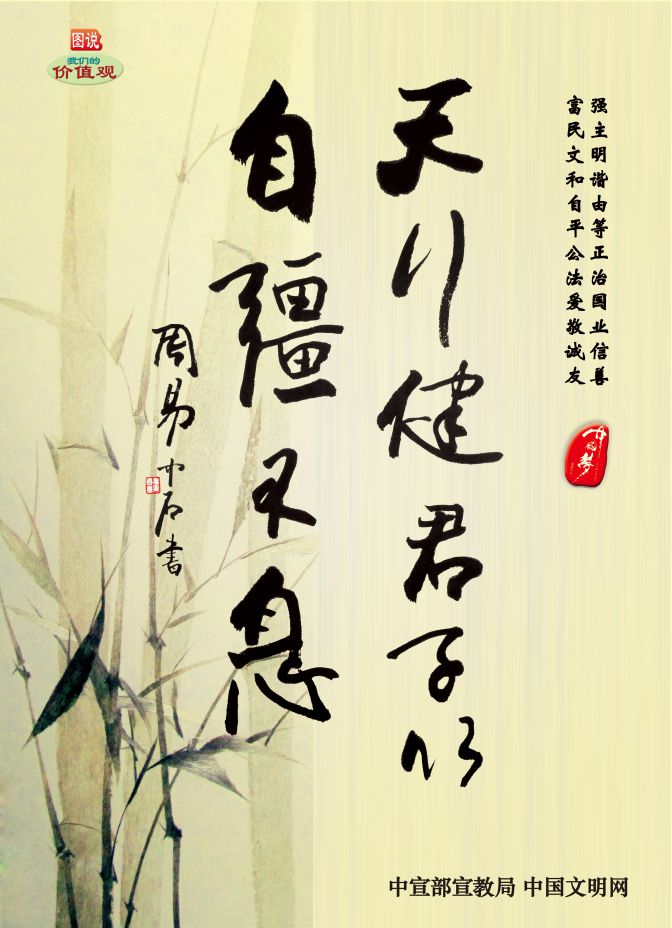 图说
我们的
价值观
富强
民主
文明
和谐
自由
平等
公正
法治
爱国
敬业
诚信
友善
中国梦
天行健君子以
自彊不息
周易中石書
中宣部宣教局 中国文明网